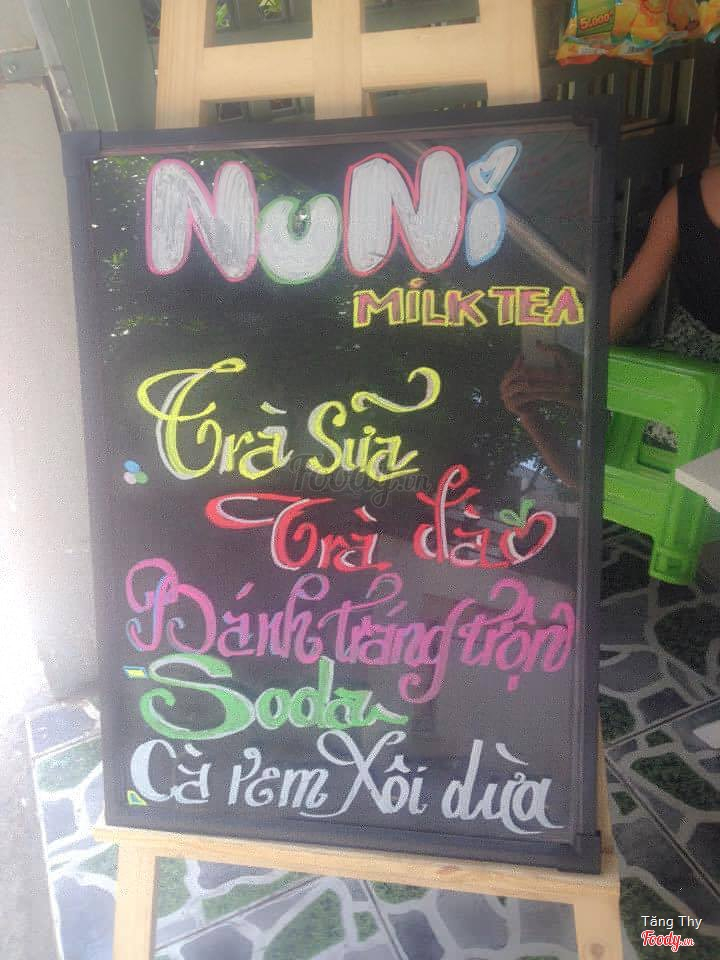 5.000đ
NuNi
MILK TEA
Trà Sữa
Foody.vn
Trà đào
Bánh tráng trộn
Soda
Cà rem Xôi dừa
Tăng Thy
Foody.vn